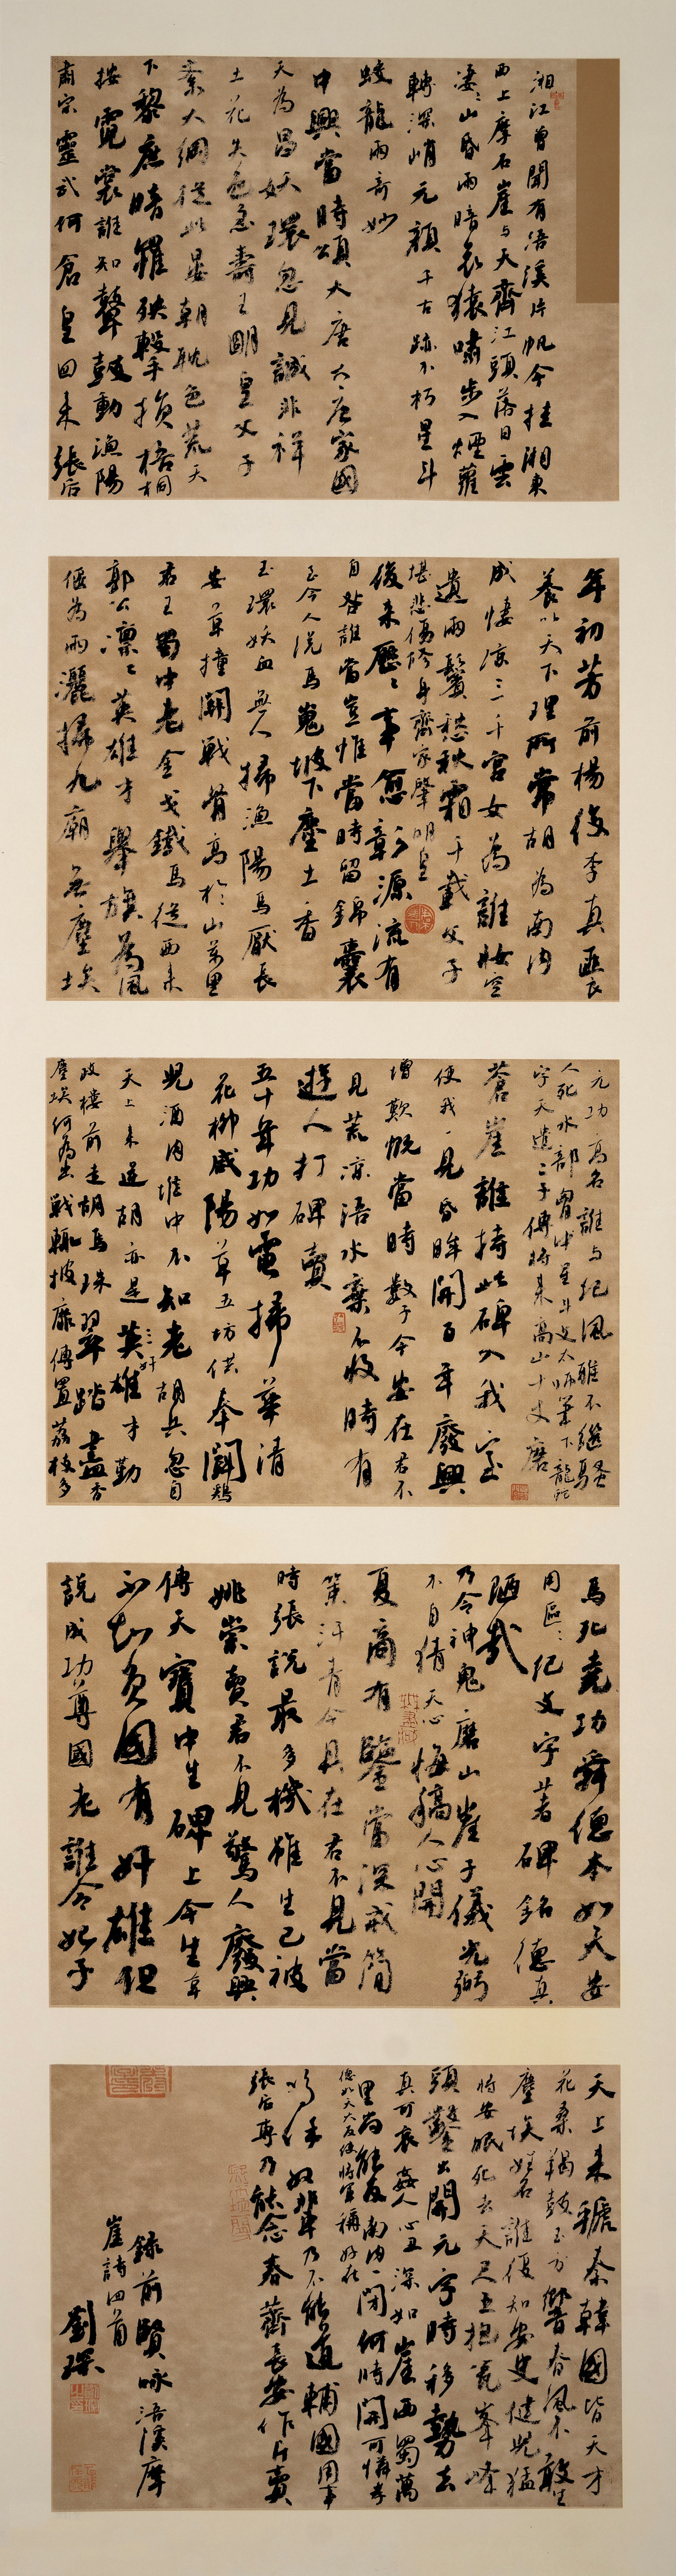 湘江曾聞有浯溪片帆今挂湘東
西上摩石崖与天齊江頭落日雲
淒〻山昏雨暗哀猿啼步入煙蘿
轉深峭元顏千古跡不朽星斗
蛟龍兩奇妙
中興當時頌大唐大唐家國
天為昌妖環忽見誠非祥
土花失色忽壽王明皇父子
紊大綱從此晏朝耽色荒天
下黎庶暗罹殃擊損梧桐
按霓裳誰知鼙鼓動漁陽
肅宗靈武何倉皇回来張后
年初芳前楊後李真匪良
養以天下理所常胡為南内
成悽涼三千宮女為誰妝空
遺兩鬢愁秋霜千載父子
堪悲傷修身齊家肇明皇
後来歷〻事愈彰源流有
自咎誰當豈惟當時留錦囊
至今人説馬嵬坡下塵土香
玉環妖血無人掃漁陽馬厭長
安草潼關戰骨高於山萬里
君王蜀中老金戈鐵馬從西来
郭公凜〻英雄才舉旗為風
偃為雨灑掃九廟無塵埃
元功高名誰与紀風雅不繼騷
人死水部胷中星斗文太師筆下龍蛇
字天遣二子傳將来高山十丈磨
蒼崖誰持此碑入我室
使我一見昏眸開百年廢興
增歎慨當時數子今安在君不
見荒涼浯水棄不收時有
遊人打碑賣
五十年功如電掃華清
花柳咸陽草五坊供奉鬬鷄
兒酒肉堆中不知老胡兵忽自
天上来逆胡亦是姦雄才勤
政樓前走胡馬珠翠踏盡香
塵埃何為出戰輒披靡傳置荔枝多
馬死堯功舜德本如天安
用區〻紀文字著碑銘德真
陋哉
乃令神鬼磨山崖子儀光弼
不自猜天心悔禍人心開
夏商有鑒當深戒簡
策汗青今具在君不見當
時張説最多機雖生已被
姚崇賣君不見驚人廢興
傳天寶中生碑上今生草
不知負國有奸雄但
説成功尊國老誰令妃子
天上来虢秦韓國皆天才
花桑羯鼓玉方響春風不敢生
塵埃姓名誰復知安史健兒猛
將安眠死去天尺五抱瓮峯峰
頭鑿出開元字時移勢去
真可哀姦人心丑深如崖西蜀萬
里尚能反南内一閉何時開可憐孝
德如天大反使將軍稱好在
嗚呼奴輩乃不能道輔國用事
張后專乃能念春薺長安作斤賣
録前賢咏浯溪摩
崖詩四首
劉璨